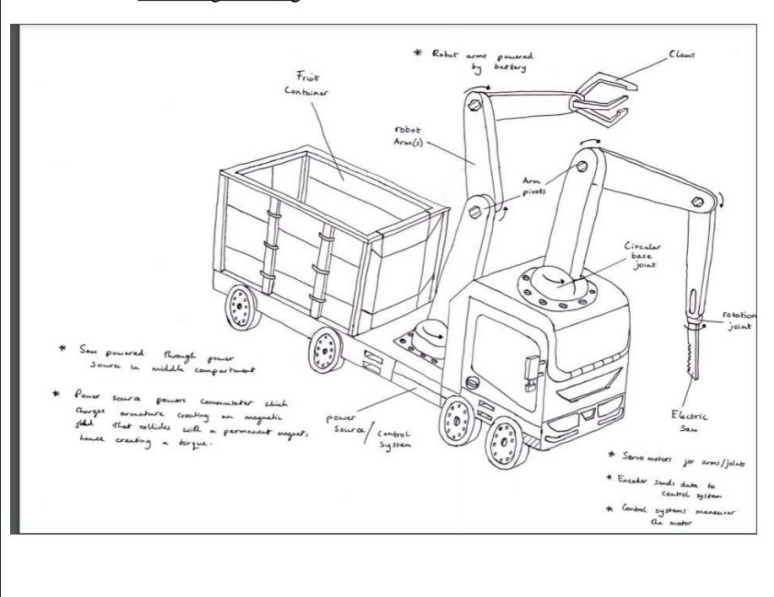 * Robot arms powered
by battery
Claws
Friut
Container
robot
Arm(s)
Arm
pivots
Circular
base
joint
rotation
joint
* Saw powered through power
source in middle compartment
* Power source powers commutator which
charges armature creating an magnetic
field that collides with a permanent magnet,
hence creating a torque.
power
Source/Control
System
Electric
Saw
* Servo motors for arms/joints
* Encoder sends data to
control system
* Control systems maneuver
the motor